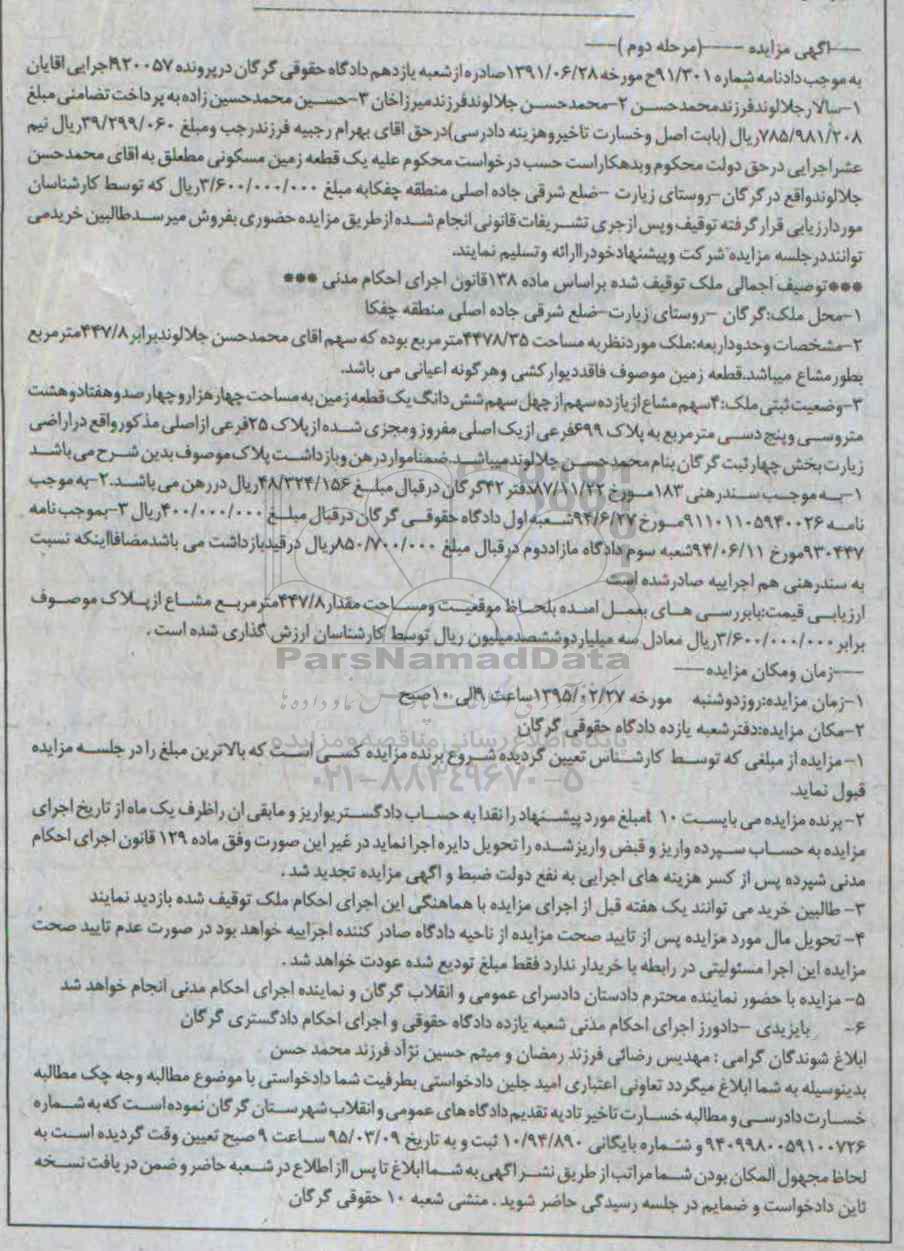 ---اگهی مزایده ----(مرحله دوم )---
به موجب دادنامه شماره ۹۱/۳۰۱ح مورخه ۱۳۹۱/۰۶/۲۸صادره از شعبه یازدهم دادگاه حقوقی گرگان در پرونده ۹۲۰۰۵۷اجرایی اقایان
۱-سالار جلالوندفرزندمحمدحسن ۲-محمدحسن جلالوندفرزندمیرزاخان ۳-حسین محمدحسین زاده به پرداخت تضامنی مبلغ
۷۸۵/۹۸۱/۲۰۸ریال (بابت اصل وخسارت تاخیروهزینه دادرسی)درحق اقای بهرام رجبیه فرزندرجب ومبلغ ۳۹/۲۹۹/۰۶۰ریال نیم
عشراجرایی درحق دولت محکوم وبدهکاراست حسب درخواست محکوم علیه یک قطعه زمین مسکونی مطعلق به اقای محمدحسن
جلالوندواقع درگرگان -روستای زیارت -ضلع شرقی جاده اصلی منطقه چفکابه مبلغ ۳/۶۰۰/۰۰۰/۰۰۰ریال که توسط کارشناسان
موردارزیابی قرارگرفته توقیف وپس ازجری تشریفات قانونی انجام شده ازطریق مزایده حضوری بفروش میرسدطالبین خریدمی
تواننددرجلسه مزایده شرکت وپیشنهادخودراارائه وتسلیم نمایند.
***توصیف اجمالی ملک توقیف شده براساس ماده ۱۳۸قانون اجرای احکام مدنی ***
۱-محل ملک:گرگان -روستای زیارت-ضلع شرقی جاده اصلی منطقه جفکا
۲-مشخصات وحدوداربعه:ملک موردنظربه مساحت ۴۴۷۸/۳۵مترمربع بوده که سهم اقای محمدحسن جلالوندبرابر۴۴۷/۸مترمربع
بطورمشاع میباشد.قطعه زمین موصوف فاقددیوارکشی وهرگونه اعیانی می باشد.
۳-وضعیت ثبتی ملک:۴سهم مشاع ازیازده سهم از چهل سهم شش دانگ یک قطعه زمین به مساحت چهارهزاروچهارصدوهفتادوهشت
متروسی وپنج دسی مترمربع به پلاک ۶۹۹فرعی ازیک اصلی مفروز ومجزی شده ازپلاک ۲۵فرعی ازاصلی مذکورواقع دراراضی
زیارت بخش چهارثبت گرگان بنام محمدحسن جلالوندمیباشد.ضمناموارد رهن وبازداشت پلاک موصوف بدین شرح می باشد
۱-به موجب سندرهنی ۱۸۳مورخ ۸۷/۱۱/۲۲دفتر۴۲گرگان درقبال مبلغ ۴۸/۳۲۴/۱۵۶ریال دررهن می باشد.۲-به موجب
نامه ۹۱۱۰۱۱۰۵۹۴۰۰۲۶مورخ ۹۴/۶/۲۷شعبه اول دادگاه حقوقی گرگان درقبال مبلغ ۴۰۰/۰۰۰/۰۰۰ریال ۳-بموجب نامه
۹۳۰۴۴۷مورخ ۹۴/۰۶/۱۱شعبه سوم دادگاه مازاددوم درقبال مبلغ ۸۵۰/۷۰۰/۰۰۰ریال درقیدبازداشت می باشدمضافااینکه نسبت
به سندرهنی هم اجراییه صادرشده است
ارزیابی قیمت:بابررسی های بعمل امده بلحاظ موقعیت ومساحت مقدار۴۴۷/۸مترمربع مشاع ازپلاک موصوف
برابر۳/۶۰۰/۰۰۰/۰۰۰ریال معادل سه میلیاردوششصدمیلیون ریال توسط کارشناسان ارزش گذاری شده است .
ParsNamadData
---زمان ومکان مزایده---
۱-زمان مزایده:روزدوشنبه مورخه ۱۳۹۵/۰۲/۲۷ساعت ۹الی۱۰صبح
۲-مکان مزایده:دفترشعبه یازده دادگاه حقوقی گرگان
پایگاه اطلاع رسانی مناقصه ومزایده
۱-مزایده از مبلغی که توسط کارشناس تعیین گردیده شروع برنده مزایده کسی است که بالاترین مبلغ را در جلسه مزایده
قبول نماید.
۰۲۱-۸۸۳۴۹۶۷۰-۵
۲-برنده مزایده می بایست ۱۰ ٪مبلغ مورد پیشنهاد را نقدا به حساب دادگستریواریز و مابقی ان راظرف یک ماه از تاریخ اجرای
مزایده به حساب سپرده واریز و قبض واریز شده را تحویل دایره اجرا نماید در غیر این صورت وفق ماده ۱۲۹ قانون اجرای احکام
مدنی شپرده پس از کسر هزینه های اجرایی به نفع دولت ضبط و اگهی مزایده تجدید شد .
۳- طالبین خرید می توانند یک هفته قبل از اجرای مزایده با هماهنگی این اجرای احکام ملک توقیف شده بازدید نمایند
۴- تحویل مال مورد مزایده پس از تایید صحت مزایده از ناحیه دادگاه صادر کننده اجراییه خواهد بود در صورت عدم تایید صحت
مزایده این اجرا مسئولیتی در رابطه با خریدار ندارد فقط مبلغ تودیع شده عودت خواهد شد .
۵- مزایده با حضور نماینده محترم دادستان دادسرای عمومی و انقلاب گرگان و نماینده اجرای احکام مدنی انجام خواهد شد
۶- بایزیدی -دادورز اجرای احکام مدنی شعبه یازده دادگاه حقوقی و اجرای احکام دادگستری گرگان
ابلاغ شوندگان گرامی : مهدیس رضائی فرزند رمضان و میثم حسین نژاد فرزند محمد حسن
بدینوسیله به شما ابلاغ میگردد تعاونی اعتباری امید جلین دادخواستی بطرفیت شما دادخواستی با موضوع مطالبه وجه چک مطالبه
خسارت دادرسی و مطالبه خسارت تاخیر تادیه تقدیم دادگاه های عمومی و انقلاب شهرستان گرگان نموده است که به شماره
۹۴۰۹۹۸۰۰۵۹۱۰۰۷۲۶ و شماره بایگانی ۱۰/۹۴/۸۹۰ ثبت و به تاریخ ۹۵/۰۳/۰۹ ساعت ۹ صبح تعیین وقت گردیده است به
لحاظ مجهول المکان بودن شما مراتب از طریق نشر اگهی به شما ابلاغ تا پس ااز اطلاع در شعبه حاضر و ضمن دریافت نسخه
ثاین دادخواست و ضمایم در جلسه رسیدگی حاضر شوید . منشی شعبه ۱۰ حقوقی گرگان